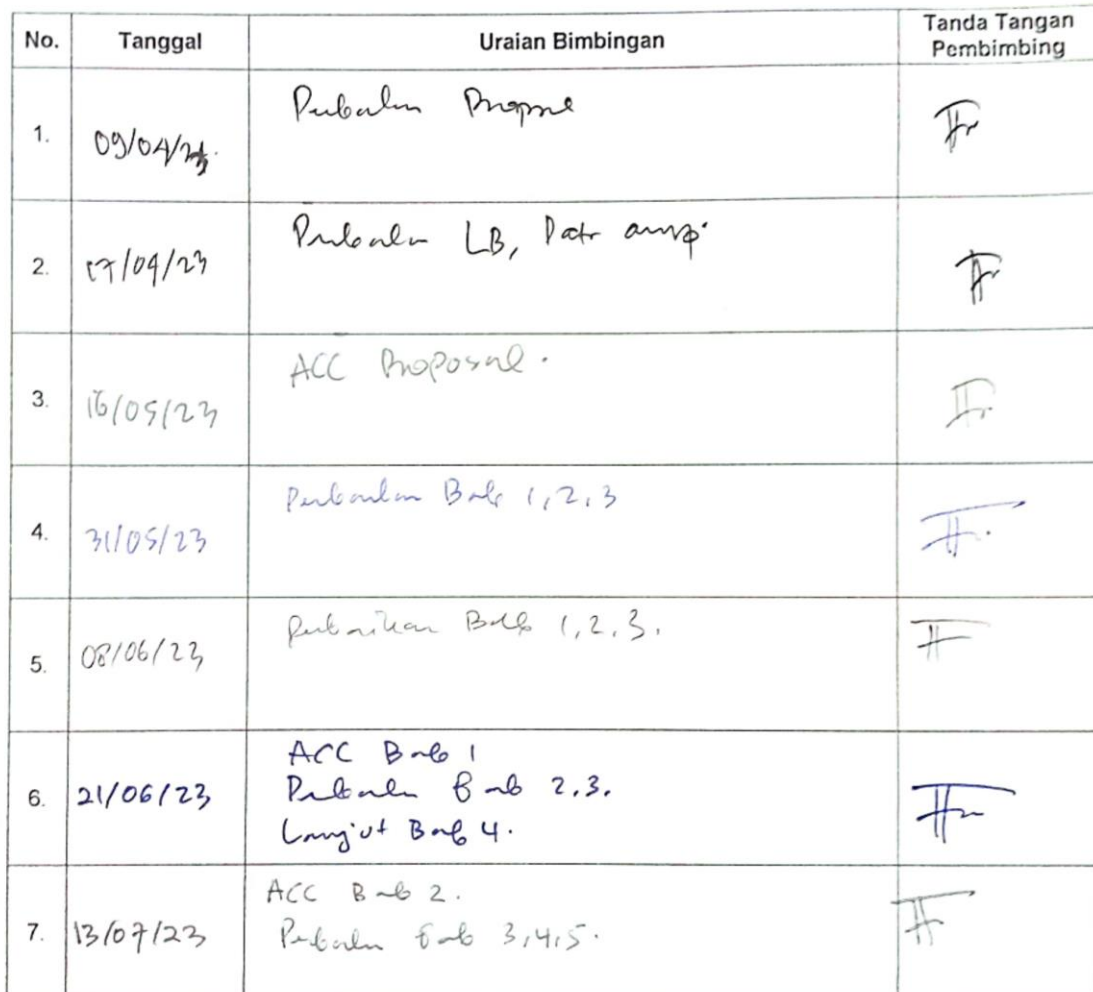 No. Tanggal Uraian Bimbingan Tanda Tangan Pembimbing
1. 09/04/23. Perbaikan Proposal
2. 17/04/23 Perbaikan LB, Data
3. 16/05/23 ACC Proposal.
4. 31/05/23 Perbaikan Bab 1,2,3
5. 08/06/23 Perbaikan Bab 1,2,3.
6. 21/06/23 ACC Bab 1
Perbaikan Bab 2.3.
Lanjut Bab 4.
7. 13/07/23 ACC Bab 2.
Perbaikan Bab 3,4,5.